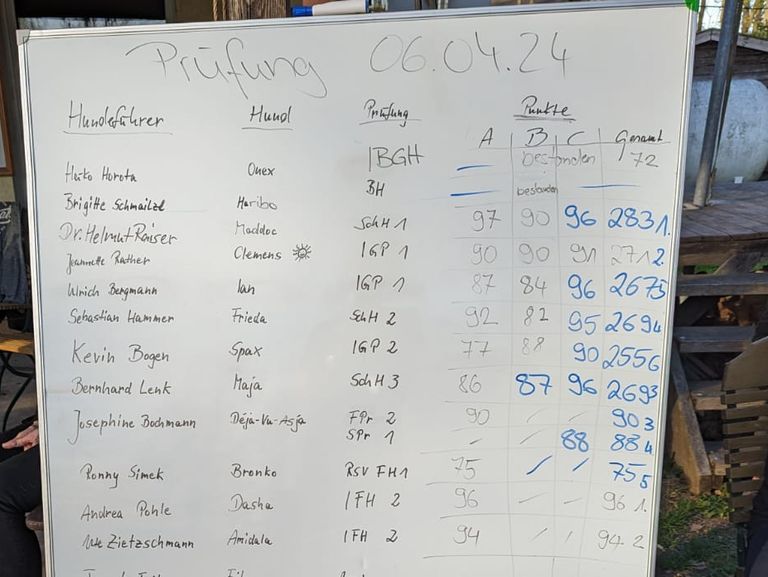 Prüfung 06.04.24
Hundeführer Hund Prüfung Punkte
A B C Gesamt
Heiko Horota Onex IBGH — bestanden 72
Brigitte Schmailzl Haribo BH — bestanden —
Dr. Helmut Raiser Maddoc SchH 1 97 90 96 283 1.
Jeannette Rather Clemens IGP 1 90 90 91 271 2.
Ulrich Bergmann Ian IGP 1 87 84 96 267 5
Sebastian Hammer Frieda SchH 2 92 82 95 269 4
Kevin Bogen Spax IGP 2 77 88 90 255 6
Bernhard Lenk Maja SchH 3 86 87 96 269 3
Josephine Bochmann Déjà-Vu-Asja FPr 2 90 / / 90 3
SPr 1 / / 88 88 4
Ronny Simek Bronko RSV FH1 75 / / 75 5
Andrea Pohle Dasha IFH 2 96 / / 96 1.
Ute Zietzschmann Amidala IFH 2 94 / / 94 2